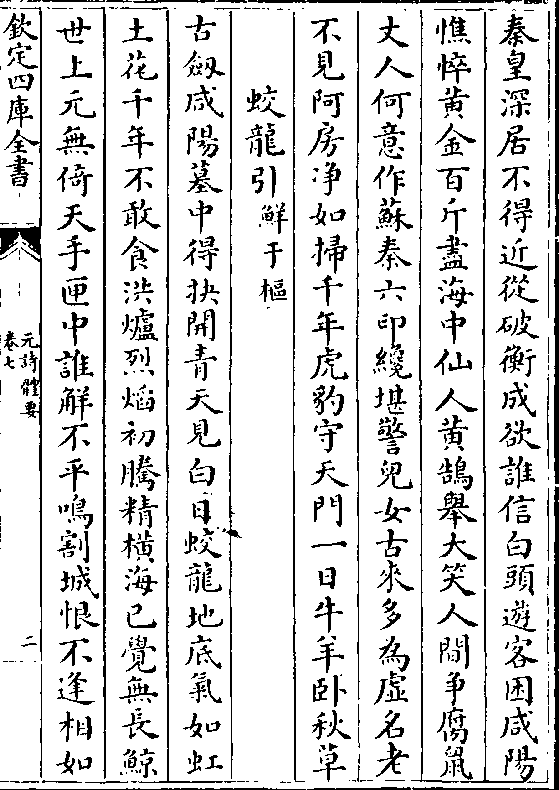 秦皇深居不得近從破衡成欲誰信白頭遊客困咸陽
憔悴黃金百斤盡海中仙人黃鵠舉大笑人間爭腐鼠
丈人何意作蘇秦六印纔堪警兒女古來多為虛名老
不見阿房凈如掃千年虎豹守天門一日牛羊卧秋草
蛟龍引鮮于樞
古劔咸陽墓中得抉開青天見白日蛟龍地底氣如虹
土花千年不敢食洪爐烈熖初騰精橫海已覺無長鯨
世上元無倚天手匣中誰解不平鳴割城恨不逢相如
欽定四庫全書
元詩體要
卷七
二